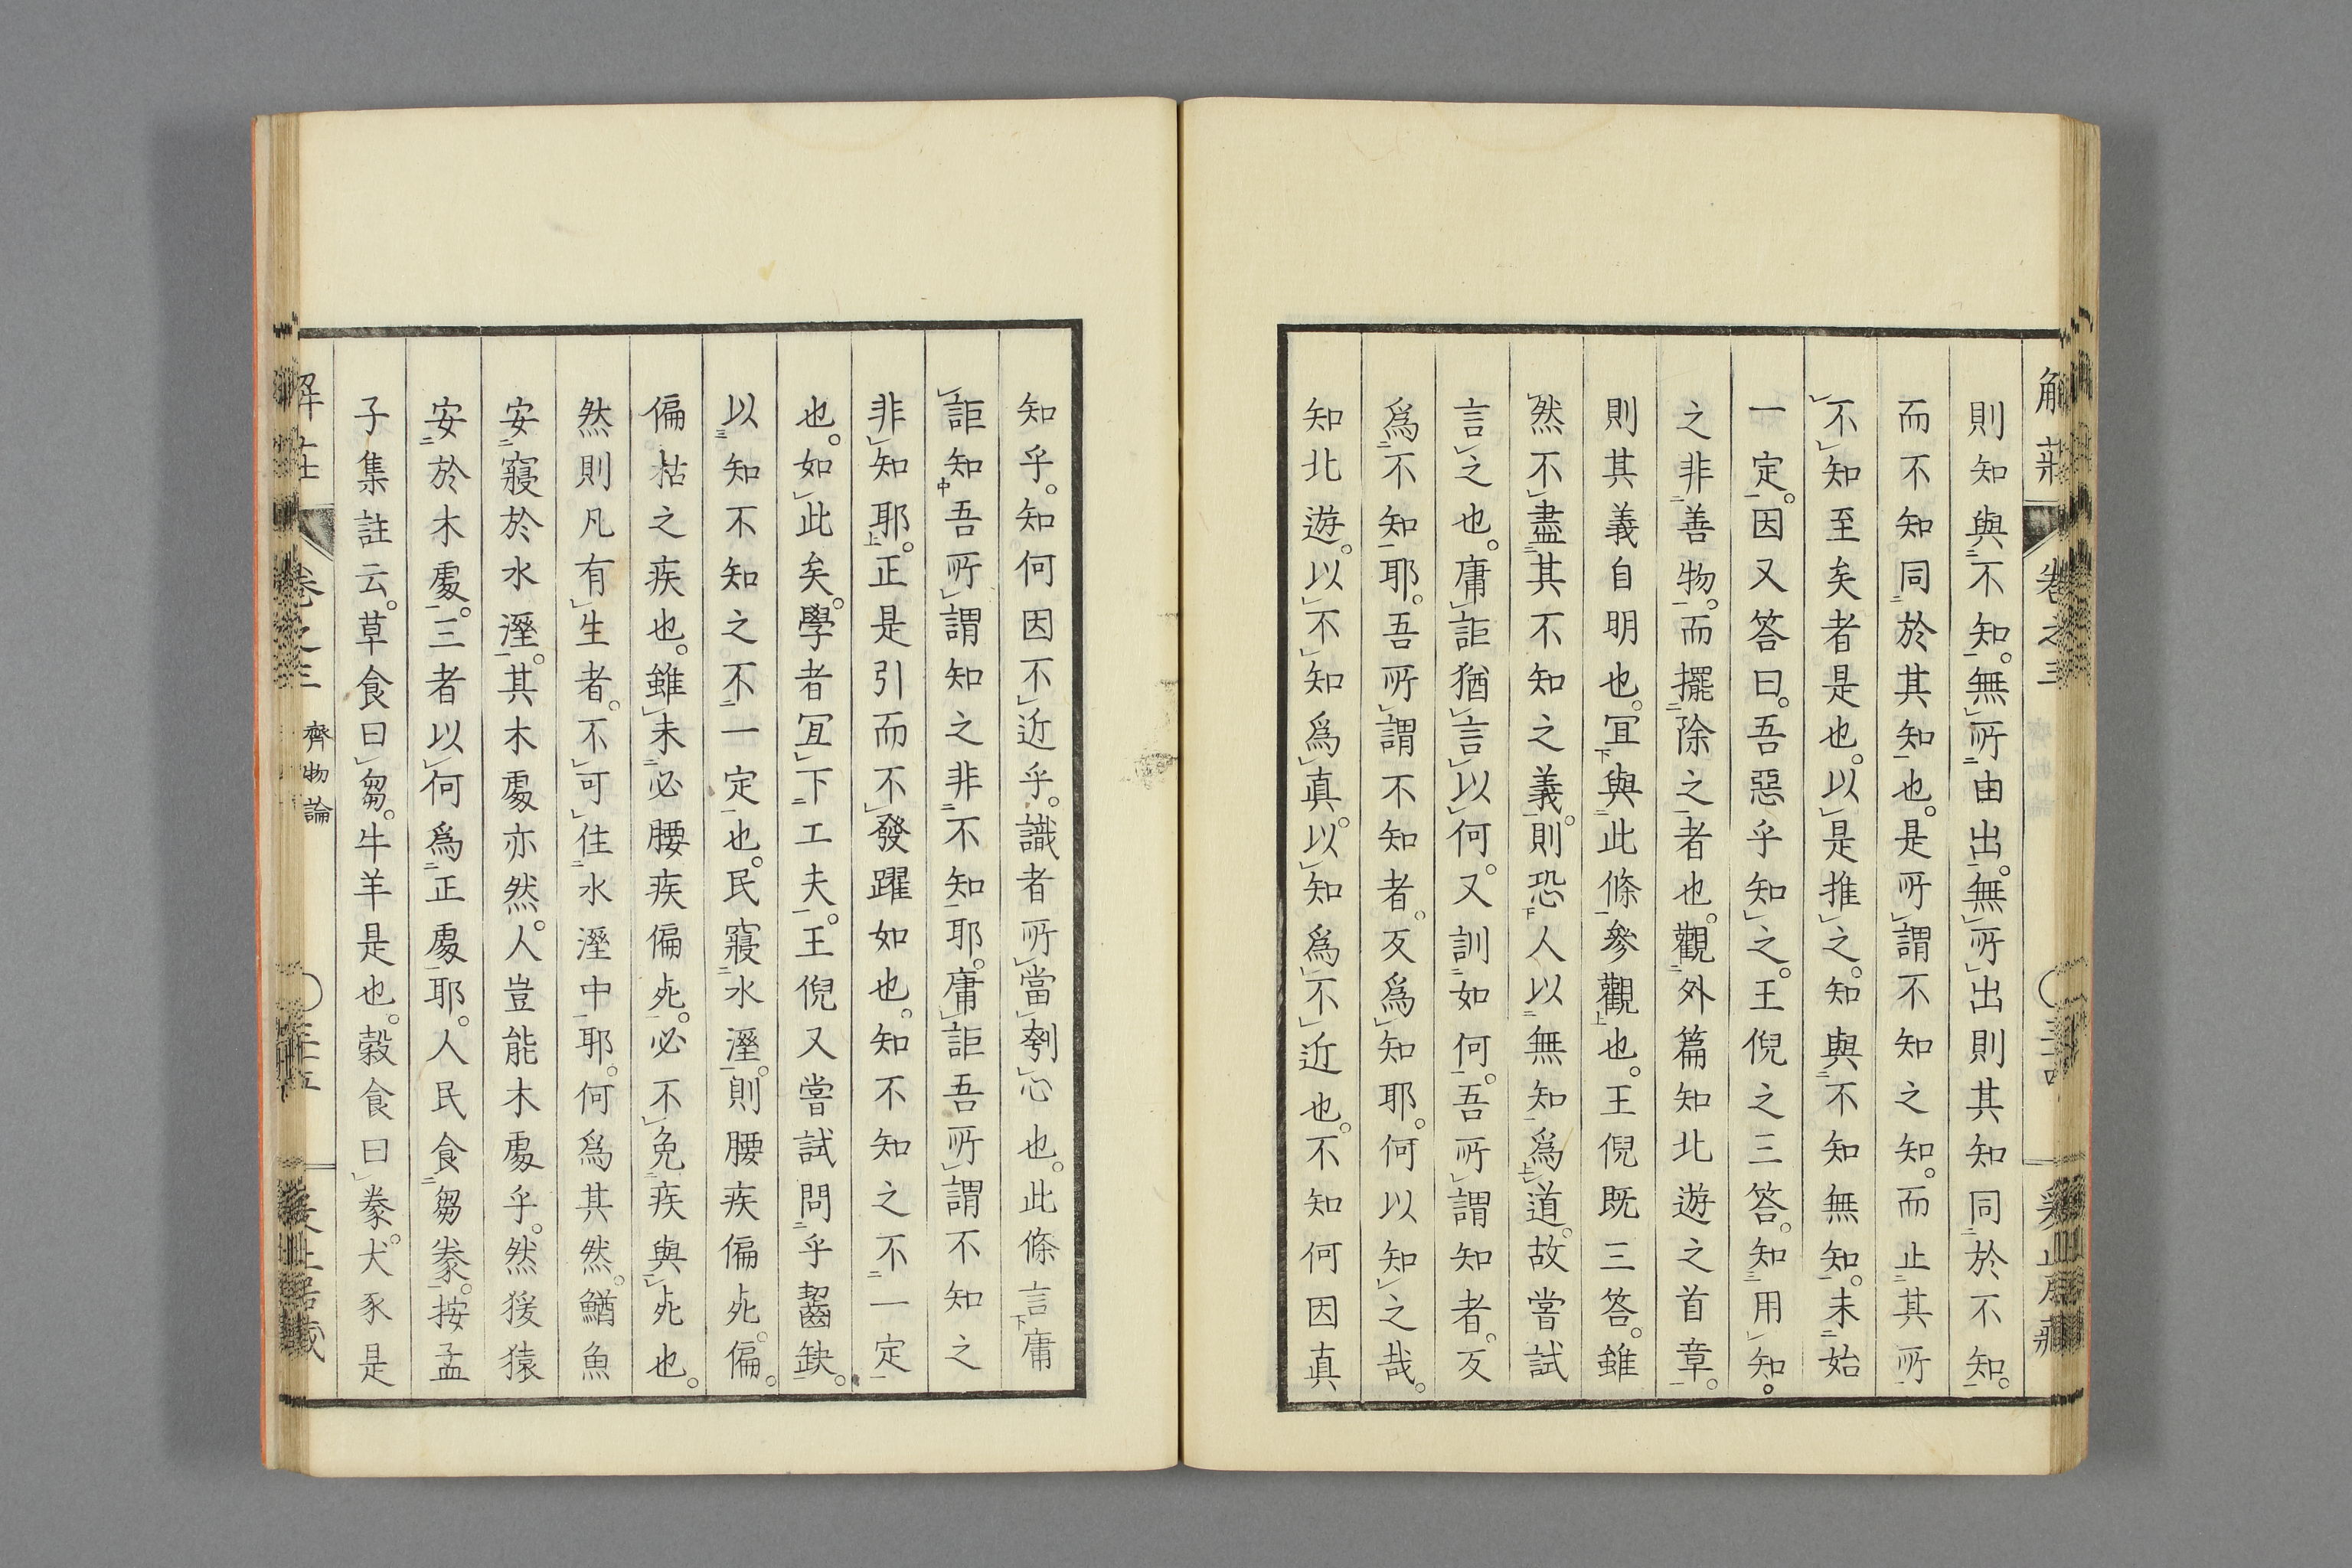 則知與不知。無所由出。無所出則其知同於不知。
而不知同於其知也。是所謂不知之知。而止其所
不知至矣者是也。以是推之。知與不知無知。未始
一定。因又答曰。吾惡乎知之。王倪之三答。知用知。
之非善物。而擺除之者也。觀外篇知北遊之首章。
則其義自明也。冝與此條參觀也。王倪既三答。雖
然不盡其不知之義。則恐人以無知爲道。故嘗試
言之也。庸詎猶言以何。又訓如何。吾所謂知者。反
爲不知耶。吾所謂不知者。反爲知耶。何以知之哉。
知北遊。以不知爲真。以知爲不近也。不知何因真
知乎。知何因不近乎。識者所當刳心也。此條言庸
詎知吾所謂知之非不知耶。庸詎吾所謂不知之
非知耶。正是引而不發躍如也。知不知之不一定
也。如此矣。學者冝下工夫。王倪又嘗試問乎齧缺。
以知不知之不一定也。民寢水溼。則腰疾偏死。偏。
偏枯之疾也。雖未必腰疾偏死。必不免疾與死也。
然則凡有生者。不可住水溼中耶。何爲其然。鰌魚
安寢於水溼。其木處亦然。人豈能木處乎。然猨猿
安於木處。三者以何爲正處耶。人民食芻豢。按孟
子集註云。草食曰芻。牛羊是也。穀食曰豢。犬豕是
解莊 卷之三 齊物論